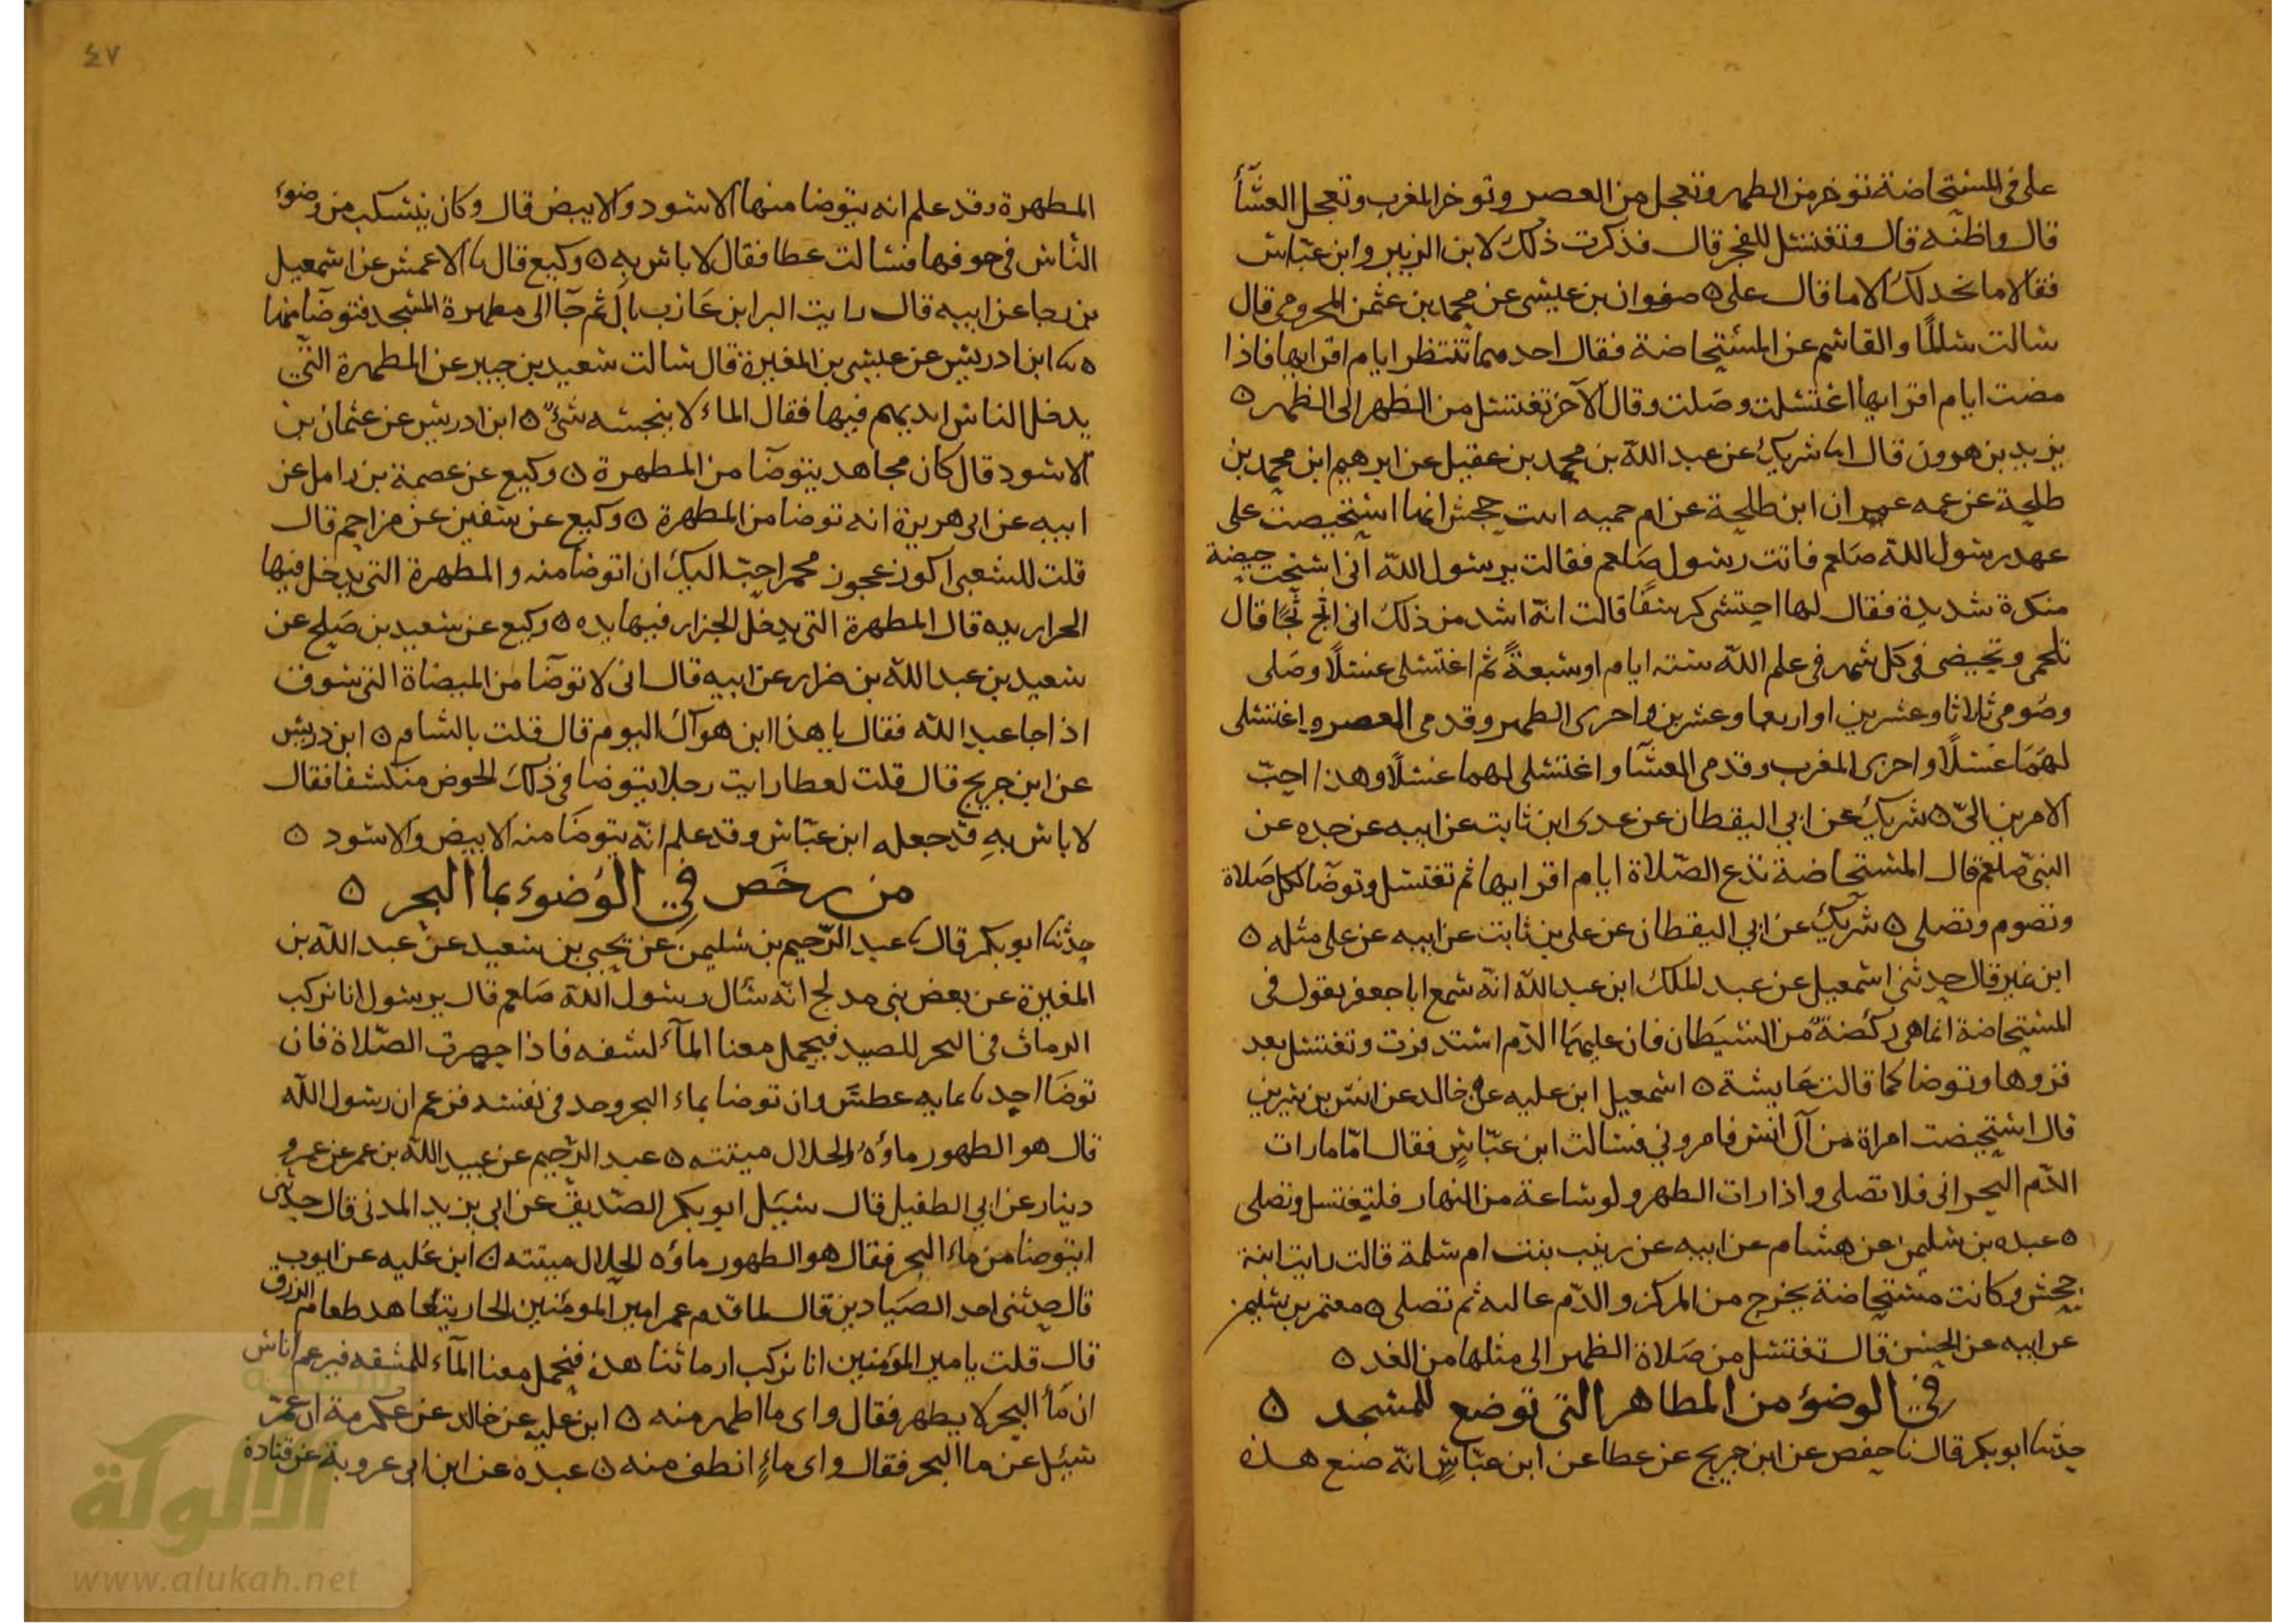 على في المستحاضة تؤخر من الظهر وتعجل من العصر وتوخر المغرب وتعجل العشاء
قال واظنه قال وتغتسل للفجر قال فذكرت ذلك لابن الزبير وابن عباس
فقالا ما نجد لك الا ما قال على ٥ صفوان بن عيسى عن محمد بن عثمن المخرومى قال
سالت سالمًا والقاسم عن المستحاضة فقال احدهما تنتظر ايام اقرايها فاذا
مضت ايام اقرايها اغتسلت وصلت وقال الآخر تغتسل من الظهر الى الظهر ٥
يزيد بن هرون قال انا شريك عن عبد الله بن محمد بن عقيل عن ابرهيم ابن محمد بن
طلحة عن عمه عمران ابن طلحة عن ام حميه ابنت جحش انها استحيضت على
عهد رسول الله صلعم فاتت رسول صلعم فقالت يرسول الله انى استحضت حيضة
منكرة شديدة فقال لها احتشى كرسفًا قالت انه اشد من ذلك انى اثج ثجًا قال
تلجمى وتحيضى فى كل شهر فى علم الله ستة ايام او سبعةً ثم اغتسلى غسلًا وصلى
وصومى ثلاثا وعشرين او اربعا وعشرين واخرى الظهر وقدمى العصر واغتسلى
لهما غسلًا واخرى المغرب وقدمى العشا واغتسلى لهما غسلًا وهذا احبّ
الامرين الىّ ٥ شريك عن ابي اليقظان عن عدى ابن ثابت عن ابيه عن جده عن
النبى صلعم قال المستحاضة تدع الصلاة ايام اقرايها ثم تغتسل وتوضا لكل صلاة
وتصوم وتصلى ٥ شريك عن ابي اليقظان عن على بن ثابت عن ابيه عن على مثله ٥
ابن نمير قال حدثنى اسمعيل عن عبد الملك ابن عبد الله انه سمع ابا جعفر يقول فى
المستحاضة انما هى ركضة من الشيطان فان عليها الدم استدفرت وتغتسل بعد
قروها وتوضا كما قالت عايشة ٥ اسمعيل ابن عليه عن خالد عن انس بن سيرين
قال استحيضت امراة من آل انس فامرونى فسالت ابن عباس فقال امّا ما رات
الدم البحرانى فلا تصلى واذا رات الطهر ولو ساعة من النهار فلتغتسل وتصلى
٥ عبده بن سليمن عن هشام عن ابيه عن زينب بنت ام سلمة قالت رايت ابنة
جحش وكانت مستحاضة تخرج من المركن والدم عاليه ثم تصلى ٥ معتمر بن سليمن
عن ابيه عن الحسن قال تغتسل من صلاة الظهر الى مثلها من الغد ٥
فى الوضوء من المطاهر التى توضع للمسجد ٥
حدثنا ابو بكر قال نا حفص عن ابن جريج عن عطا عن ابن عباس انه صنع هذه
٤٧
المطهرة وقد علم انه يتوضا منها الاسود والابيض قال وكان ينسكب من وضوء
الناس فى جوفها فسالت عطا فقال لا باس به ٥ وكيع قال نا الاعمش عن اسمعيل
بن رجا عن ابيه قال رايت البرا ابن عازب بال ثم جآ الى مطهرة المسجد فتوضا منها
٥ نا ابن ادريس عن عيسى بن المغيرة قال سالت سعيد بن جبير عن المطهرة التى
يدخل الناس ايديهم فيها فقال الماء لا ينجسه شئ ٥ ابن ادريس عن عثمان بن
الاسود قال كان مجاهد يتوضا من المطهرة ٥ وكيع عن عصمة بن زامل عن
ابيه عن ابى هريرة انه توضا من المطهرة ٥ وكيع عن سفين عن مزاحم قال
قلت للشعبى اكوز عجوز مخمر احبّ اليك ان اتوضا منه و المطهرة التى يدخل فيها
الجزار يده قال المطهرة التى يدخل الجزار فيها يده ٥ وكيع عن سعيد بن صلح عن
سعيد بن عبد الله بن ضرار عن ابيه قال انى لاتوضا من الميضاة التى بسوق
اذ اجا عبد الله فقال يا هذا ابن هواك اليوم قال قلت بالشام ٥ ابن دريس
عن ابن جريج قال قلت لعطا رايت رجلا يتوضا فى ذلك الحوض منكشفا فقال
لا باس به قد جعله ابن عباس وقد علم انه يتوضا منه الابيض والاسود ٥
من رخّص في الوُضوء بما البحر ٥
حدثنا ابو بكر قال نا عبد الرحيم بن سليمن عن يحيى بن سعيد عن عبد الله بن
المغيرة عن بعض بنى مدلج انه سال رسول الله صلعم قال يرسول انا نركب
الارماث فى البحر للصيد فيحمل معنا المآء لشفه فاذا حضرت الصلاة فان
توضا احدنا بمايه عطش وان توضا بماء البحر وجد فى نفسه فزعم ان رسول الله
قال هو الطهور ماؤه والحلال ميتته ٥ عبد الرحيم عن عبيد الله بن عمر عن عمرو
دينار عن ابي الطفيل قال سيل ابو بكر الصديق عن ابى يزيد المدنى قال حدثنى
ايتوضا من ماء البحر فقال هو الطهور ماؤه الحلال ميتته ٥ ابن عليه عن ايوب
قال حدثنى احد الصيادين قال لما قدم عمر امير المومنين الجار يتعاهد طعام الرزق
قال قلت يا مير المؤمنين انا نركب ارماثنا هذه فنحمل معنا المآء للشفه فيزعم اناس
ان مآ البحر لا يطهر فقال واى ما اطهر منه ٥ ابن عليه عن خالد عن عكرمة ان عمر
سئل عن ما البحر فقال واى ماءٍ انظف منه ٥ عبده عن ابن ابى عروبة عن قتادة
الألوكة
www.alukah.net